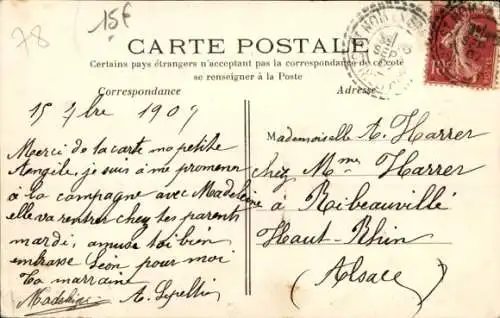 78
15F
CARTE POSTALE
Certains pays étrangers n'acceptant pas la correspondance de ce côté
se renseigner à la Poste
Correspondance
Adresse
15 7bre 1907
Merci de la carte ma petite
Angèle, je suis à me promener
à la campagne avec Madeleine
elle va rentrer chez tes parents
mardi, amuse toi bien
embrasse Léon pour moi
Ta marraine
Madeleine A.
Mademoiselle A. Harrer
chez Mme Harrer
à Ribeauvillé
Haut-Rhin
(Alsace)